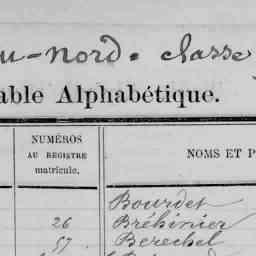 u-nord. classe
able Alphabétique.
NUMÉROS
AU REGISTRE
matricule.
NOMS ET P
Bourdet
26 Bréhinier
57 Berechel